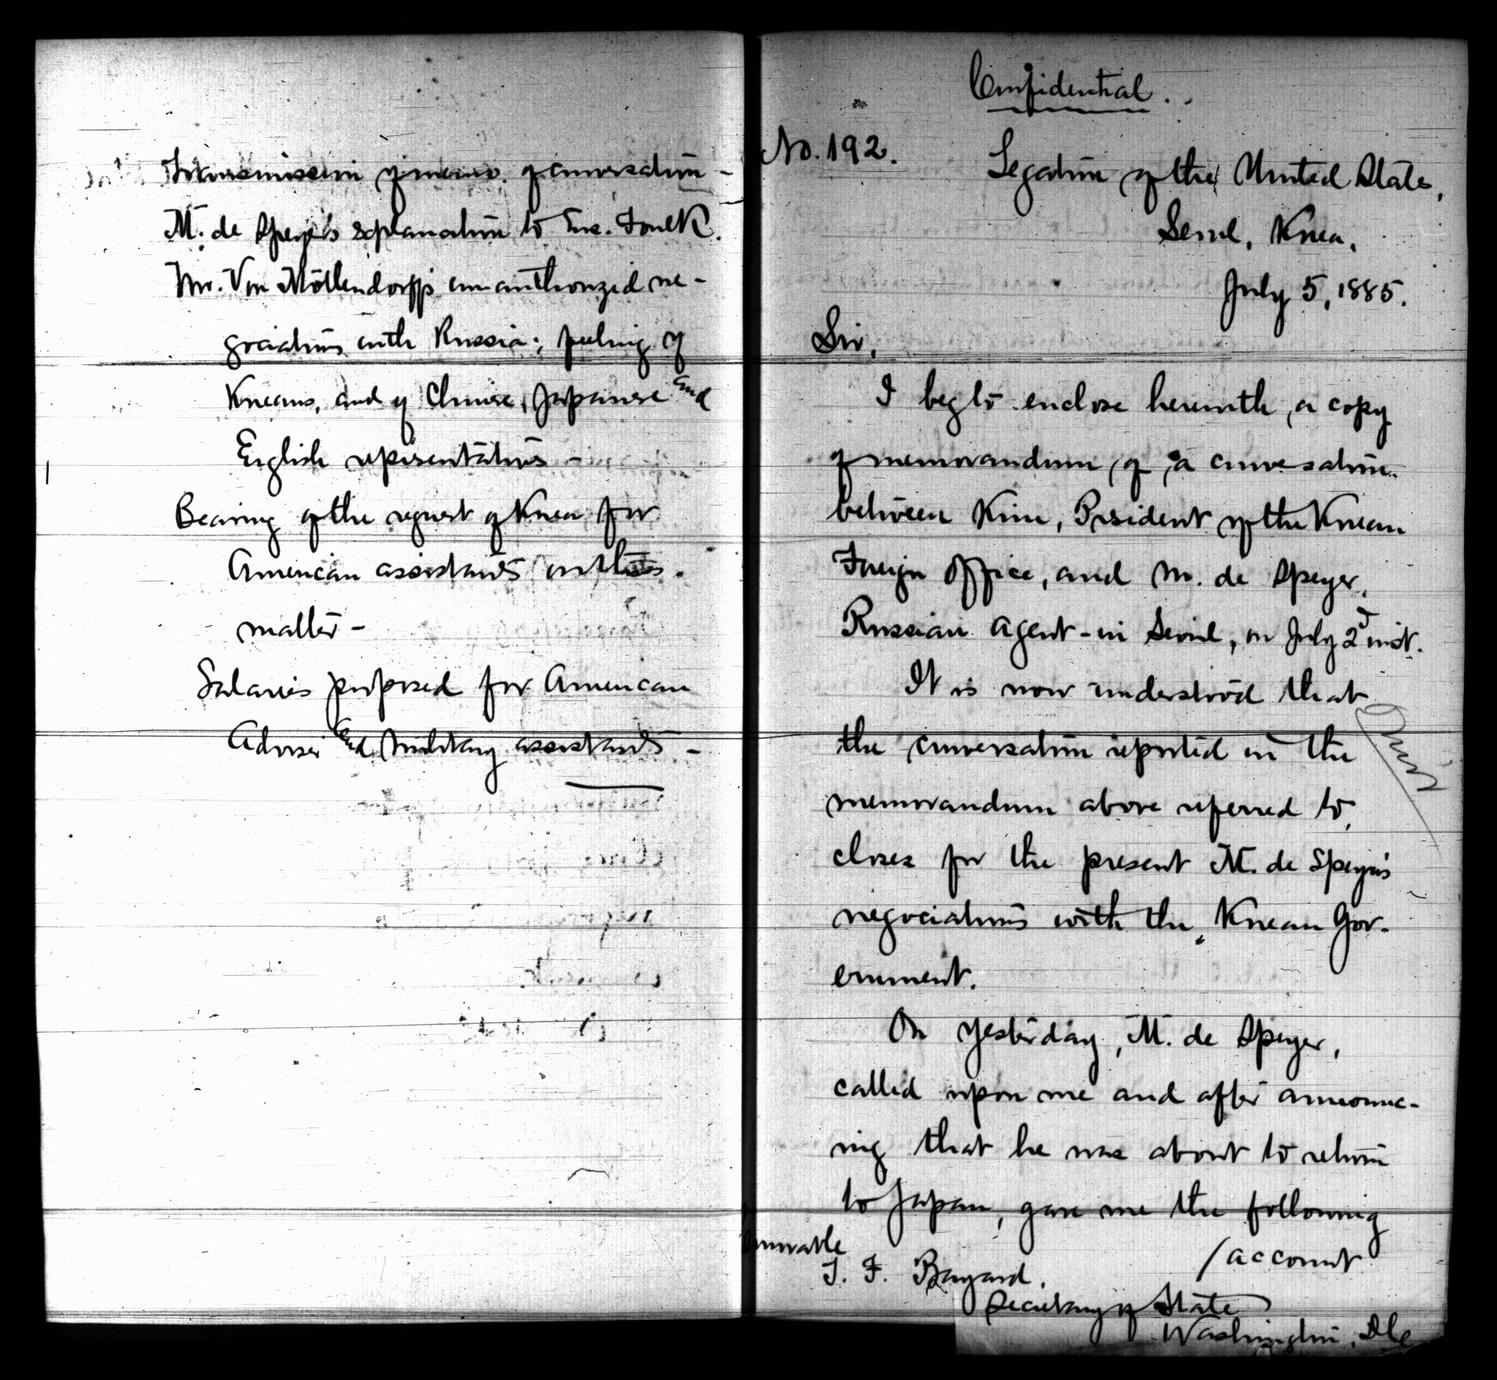 Transmission of memo. of conversation -
M. de Speyer's explanation to Mr. Foulk.
Mr. Von Möllendorff's unauthorized ne-
gociations with Russia; feeling of
Koreans, and of Chinese, Japanese and
English representatives -
Bearing of the request of Korea for
American assistants in this
matter -
Salaries proposed for American
Adviser and military assistants -
Confidential.
No. 192.
Legation of the United States,
Seoul, Korea,
July 5, 1885.
Sir,
I beg to enclose herewith, a copy
of memorandum, of a conversation
between Kim, President of the Korean
Foreign Office, and M. de Speyer,
Russian Agent - in Seoul, on July 2d inst.
It is now understood that
the conversation reported in the
memorandum above referred to,
closes for the present M. de Speyer's
negociations with the Korean Gov-
ernment.
On yesterday, M. de Speyer,
called upon me and after announc-
ing that he was about to return
to Japan, gave me the following
/account
T. F. Bayard,
Secretary of State
Washington, D.C.